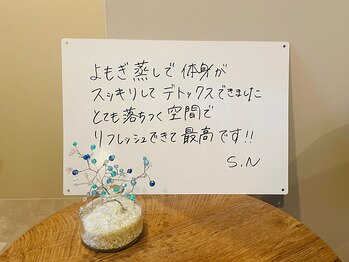 よもぎ蒸しで体身が
スッキリしてデトックスできました
とても落ちつく空間で
リフレッシュできて最高です!!
S.N